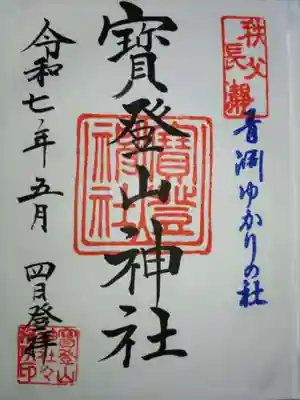 秩父
長瀞
青淵ゆかりの社
寶登山神社
寶登山
神社
令和七年五月四日登拝
寶登山
神社々
務所印